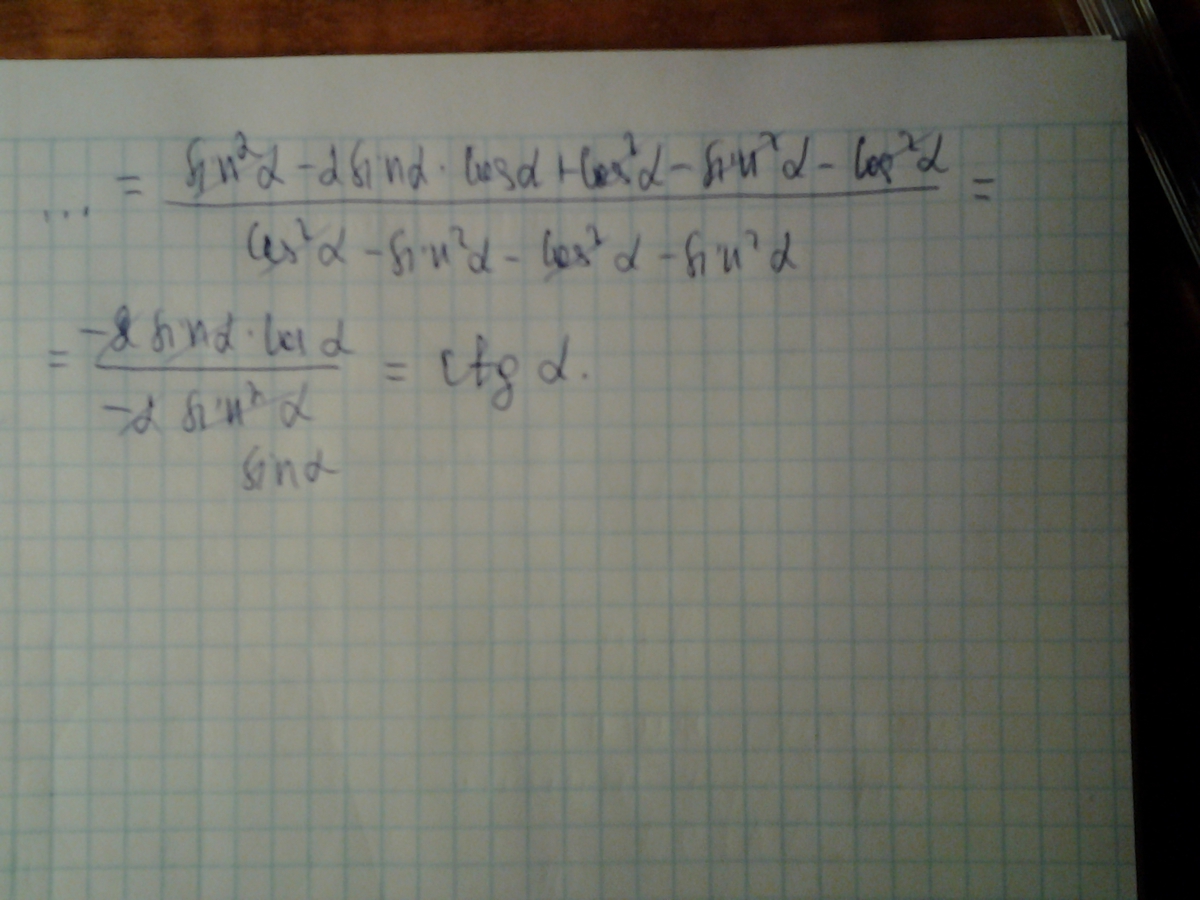 ... = sin²α - 2sinα · cosα + cos²α - sin²α - cos²α / cos²α - sin²α - cos²α - sin²α =
= -2 sinα · cosα / -2 sin²α = ctg α.
sinα